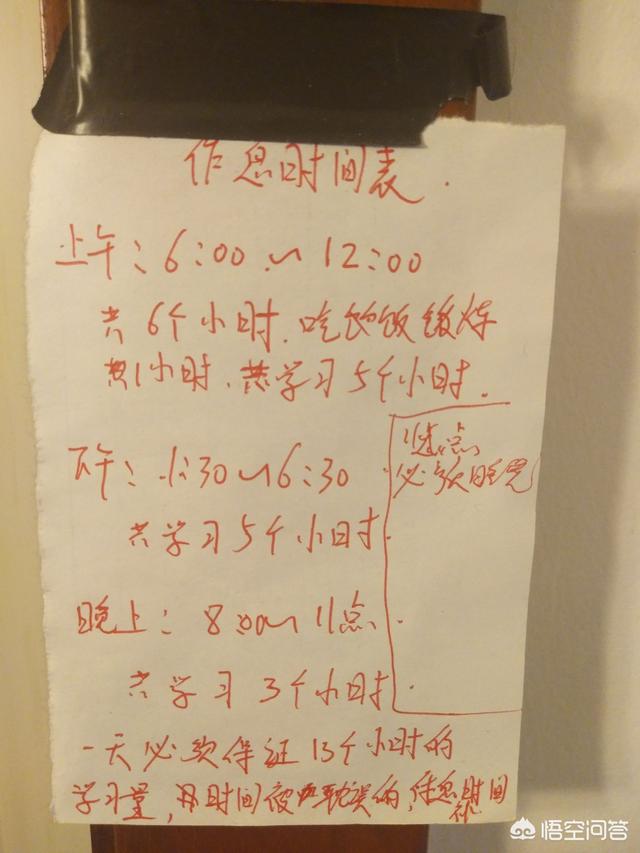 作息时间表.
上午：6:00~12:00
共6个小时.吃饭锻炼
共1小时、共学习5个小时.
下午：1:30~6:30
共学习5个小时.
11点
必须睡觉
晚上：8:00~11点.
共学习3个小时.
一天必须保证13个小时的
学习量，时间被耽误的，作息时间
悟空问答